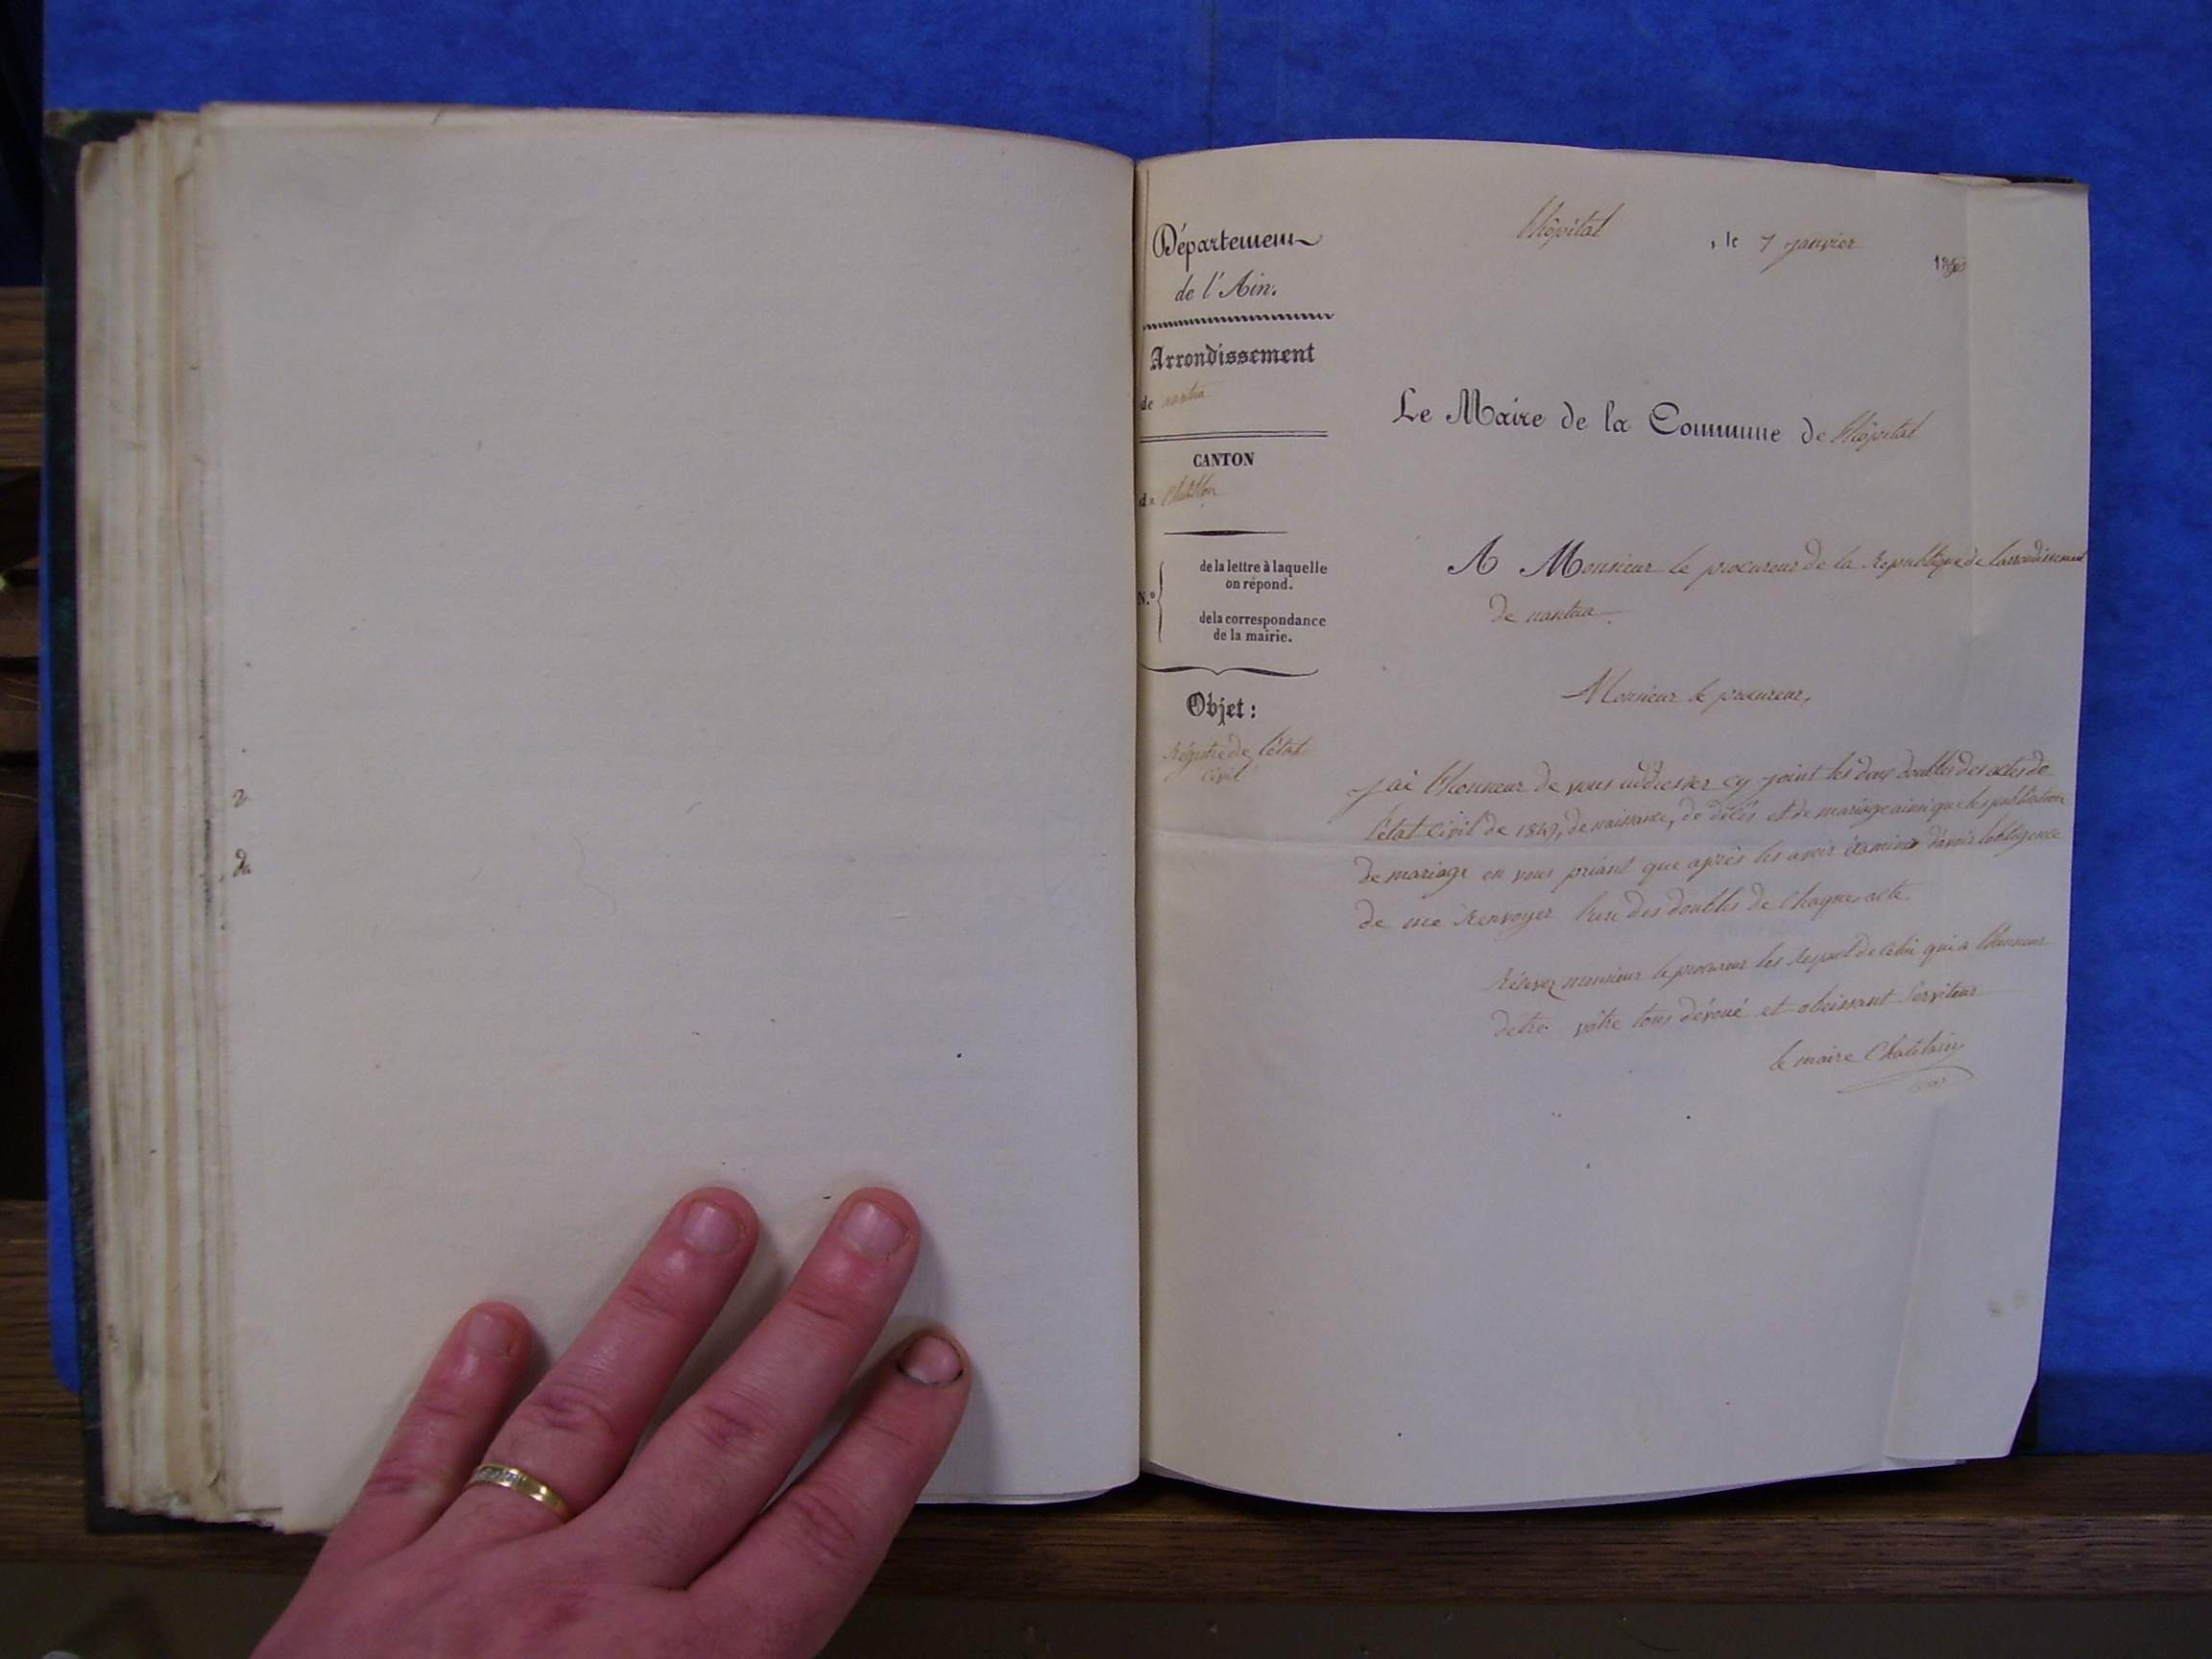 Département
de l'Ain.
Arrondissement
de nantua
CANTON
de Chatillon
N.º
de la lettre à laquelle
on répond.
de la correspondance
de la mairie.
Objet :
Régistre de l'état
Civil
l'hôpital , le 7 janvier
1850
Le Maire de la Commune de l'hôpital
A Monsieur le procureur de la République de larrondissement
de nantua
Monsieur le procureur,
J'ai lhonneur de vous addresser cy joint les deux doubles des actes de
l'état Civil de 1849, de naissance, de décès et de mariage ainsi que les publication
de mariage en vous priant que après les avoir éxaminer d'avoir lobligence
de me Renvoyer lun des doubles de Chaque acte.
Récevez monsieur le procureur les Respect de Celui qui a lhonneur
dêtre vôtre tous dévoué et obeissant Serviteur
le maire Chatelain